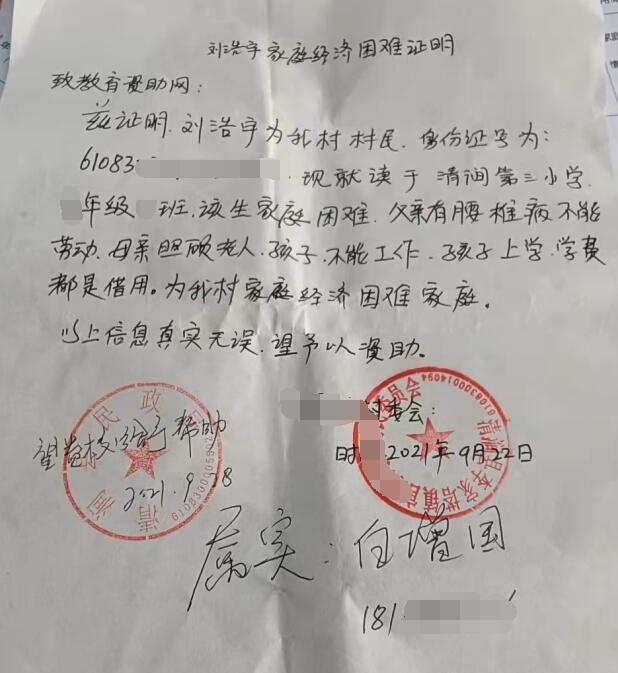 刘浩宇家庭经济困难证明
致教育资助网：
兹证明.刘浩宇为我村村民.身份证号为：
61083
.现就读于清涧第三小学.
年级 班.该生家庭困难.父亲有腰椎病不能
劳动.母亲照顾老人.孩子.不能工作.孩子上学.学费
都是借用。为我村家庭经济困难家庭。
以上信息真实无误.望予以资助。
村委会：
2021年9月22日
望贵校给予帮助
2021.9.28
清涧 民政
属实：白增国
181